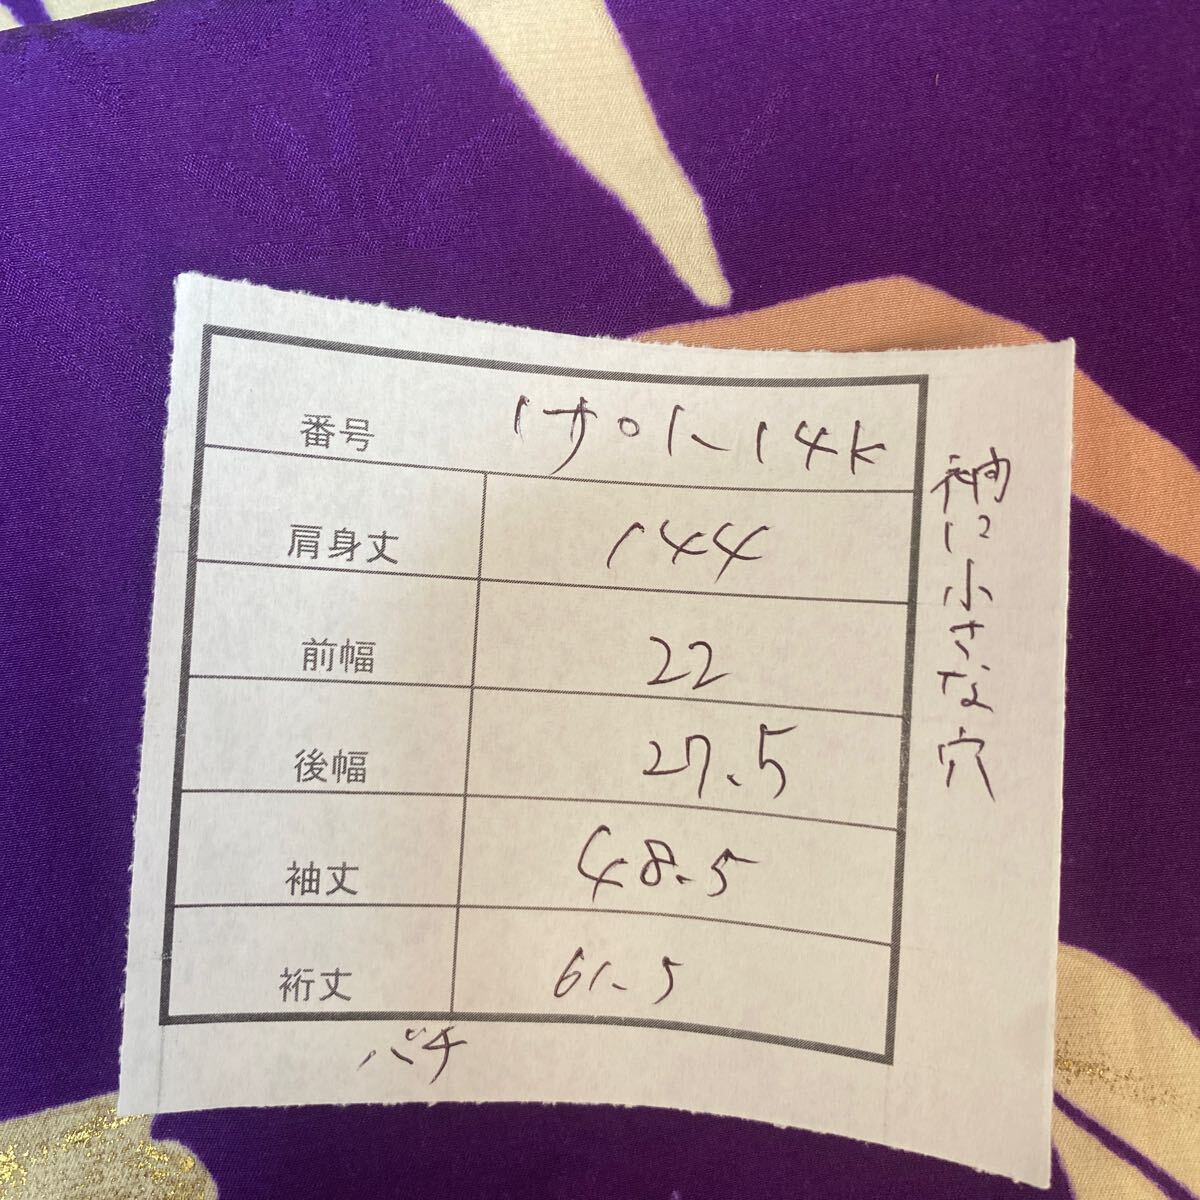 番号 1サ01-14K
肩身丈 144
前幅 22
後幅 27.5
袖丈 48.5
裄丈 61.5
バチ
袖に小さな穴